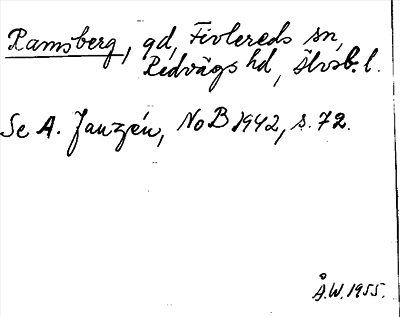 Ramsberg, gd, Fivlereds sn,
Redvägs hd, Älvsb. l.
Se A. Janzén, NoB 1942, s. 72.
Å.W. 1955.